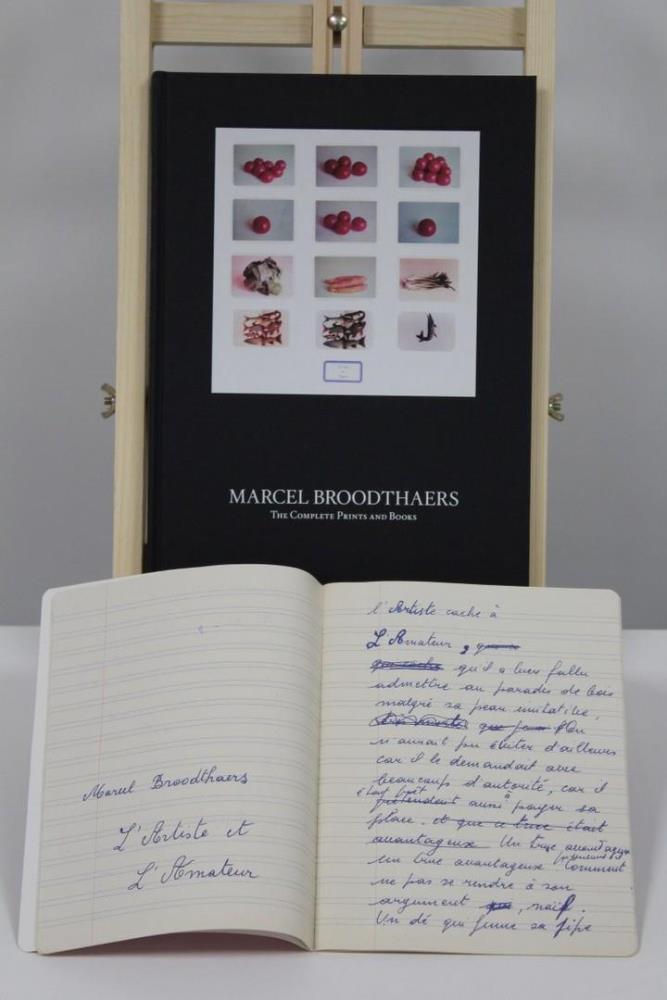 MARCEL BROODTHAERS
THE COMPLETE PRINTS AND BOOKS
Marcel Broodthaers
L'Artiste et
L'Amateur
l'Artiste cache à
L'Amateur,
qu'il a bien fallu
admettre au paradis de bois
malgré sa peau imitative,
On
n'aurait pu éviter d'ailleurs
car il le demandait avec
beaucoup d'autorité, car il
était prêt à
prétendait aussi payer sa
place. et que ce truc était
avantageux Un truc avantageux
un truc avantageux Comment
ne pas se rendre à son
argument, naïf.
Un dé qui fume sa pipe